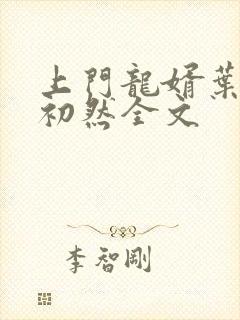 上門龍婿葉
初然全文
李智剛